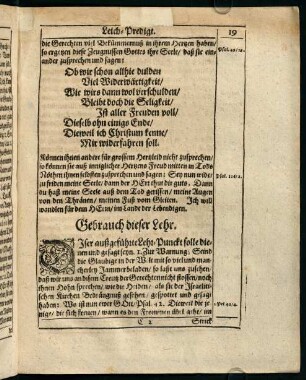 Leich-Predigt.
19
die Gerechten viel Bekümmernuß in ihrem Hertzen haben/
so ergetzen diese Zeugnussen Gottes ihre Seele/ daß sie ein-
ander zusprechen und sagen:
Ob wir schon allhie dulden
Viel Widerwärtigkeit/
Wie wirs dann wol verschulden/
Bleibt doch die Seligkeit/
Ist aller Freuden voll/
Dieselb ohn einigs Ende/
Dieweil ich Christum kenne/
Mir widerfahren soll.
Können ihnen andere für grossem Hertzleid nicht zusprechen/
so können sie auß inniglicher Hertzens Freud mitten in Todts
Nöthen ihnen selbsten zusprechen und sagen: Sey nun wider
zu friden meine Seele/ dann der HErr thut dir guts. Dann
du hast meine Seele auß dem Tod gerissen/ meine Augen
von den Thränen/ meinen Fuß vom Gleiten. Ich will
wandlen für dem HErrn/ im Lande der Lebendigen.
Gebrauch dieser Lehr.
Dieser außgeführte Lehr-Punckt solle die-
nen und gesagt seyn. 1. Zur Warnung: Seind
die Glaubige in der Welt mit so viel und man-
cherley Jammer beladen/ so lasst uns zusehen/
daß wir uns an disem Creutz der Gerechten nicht stossen/ noch
ihnen Hohn sprechen/ wie die Heiden/ als sie der Israeliti-
schen Kirchen Bedrängnuß gesehen/ gespottet und gesagt
haben: Wo ist nun ewer GOtt/ Psal. 42. Dieweil die je-
nige/ die sich frewen/ wann es den Frommen übel geht/ im
C 2
Strick